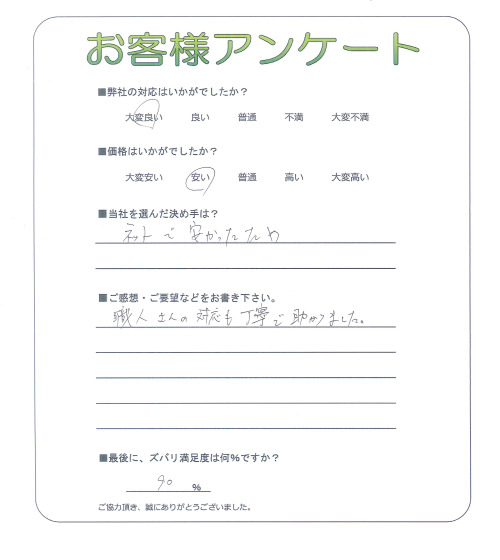 お客様アンケート
■弊社の対応はいかがでしたか？
大変良い 良い 普通 不満 大変不満
■価格はいかがでしたか？
大変安い 安い 普通 高い 大変高い
■当社を選んだ決め手は？
ネットで安かったため
■ご感想・ご要望などをお書き下さい。
職人さんの対応も丁寧で助かりました。
■最後に、ズバリ満足度は何％ですか？
90 ％
ご協力頂き、誠にありがとうございました。